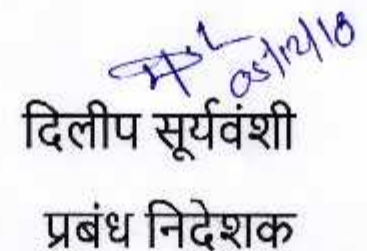 05/12/18
दिलीप सूर्यवंशी
प्रबंध निदेशक